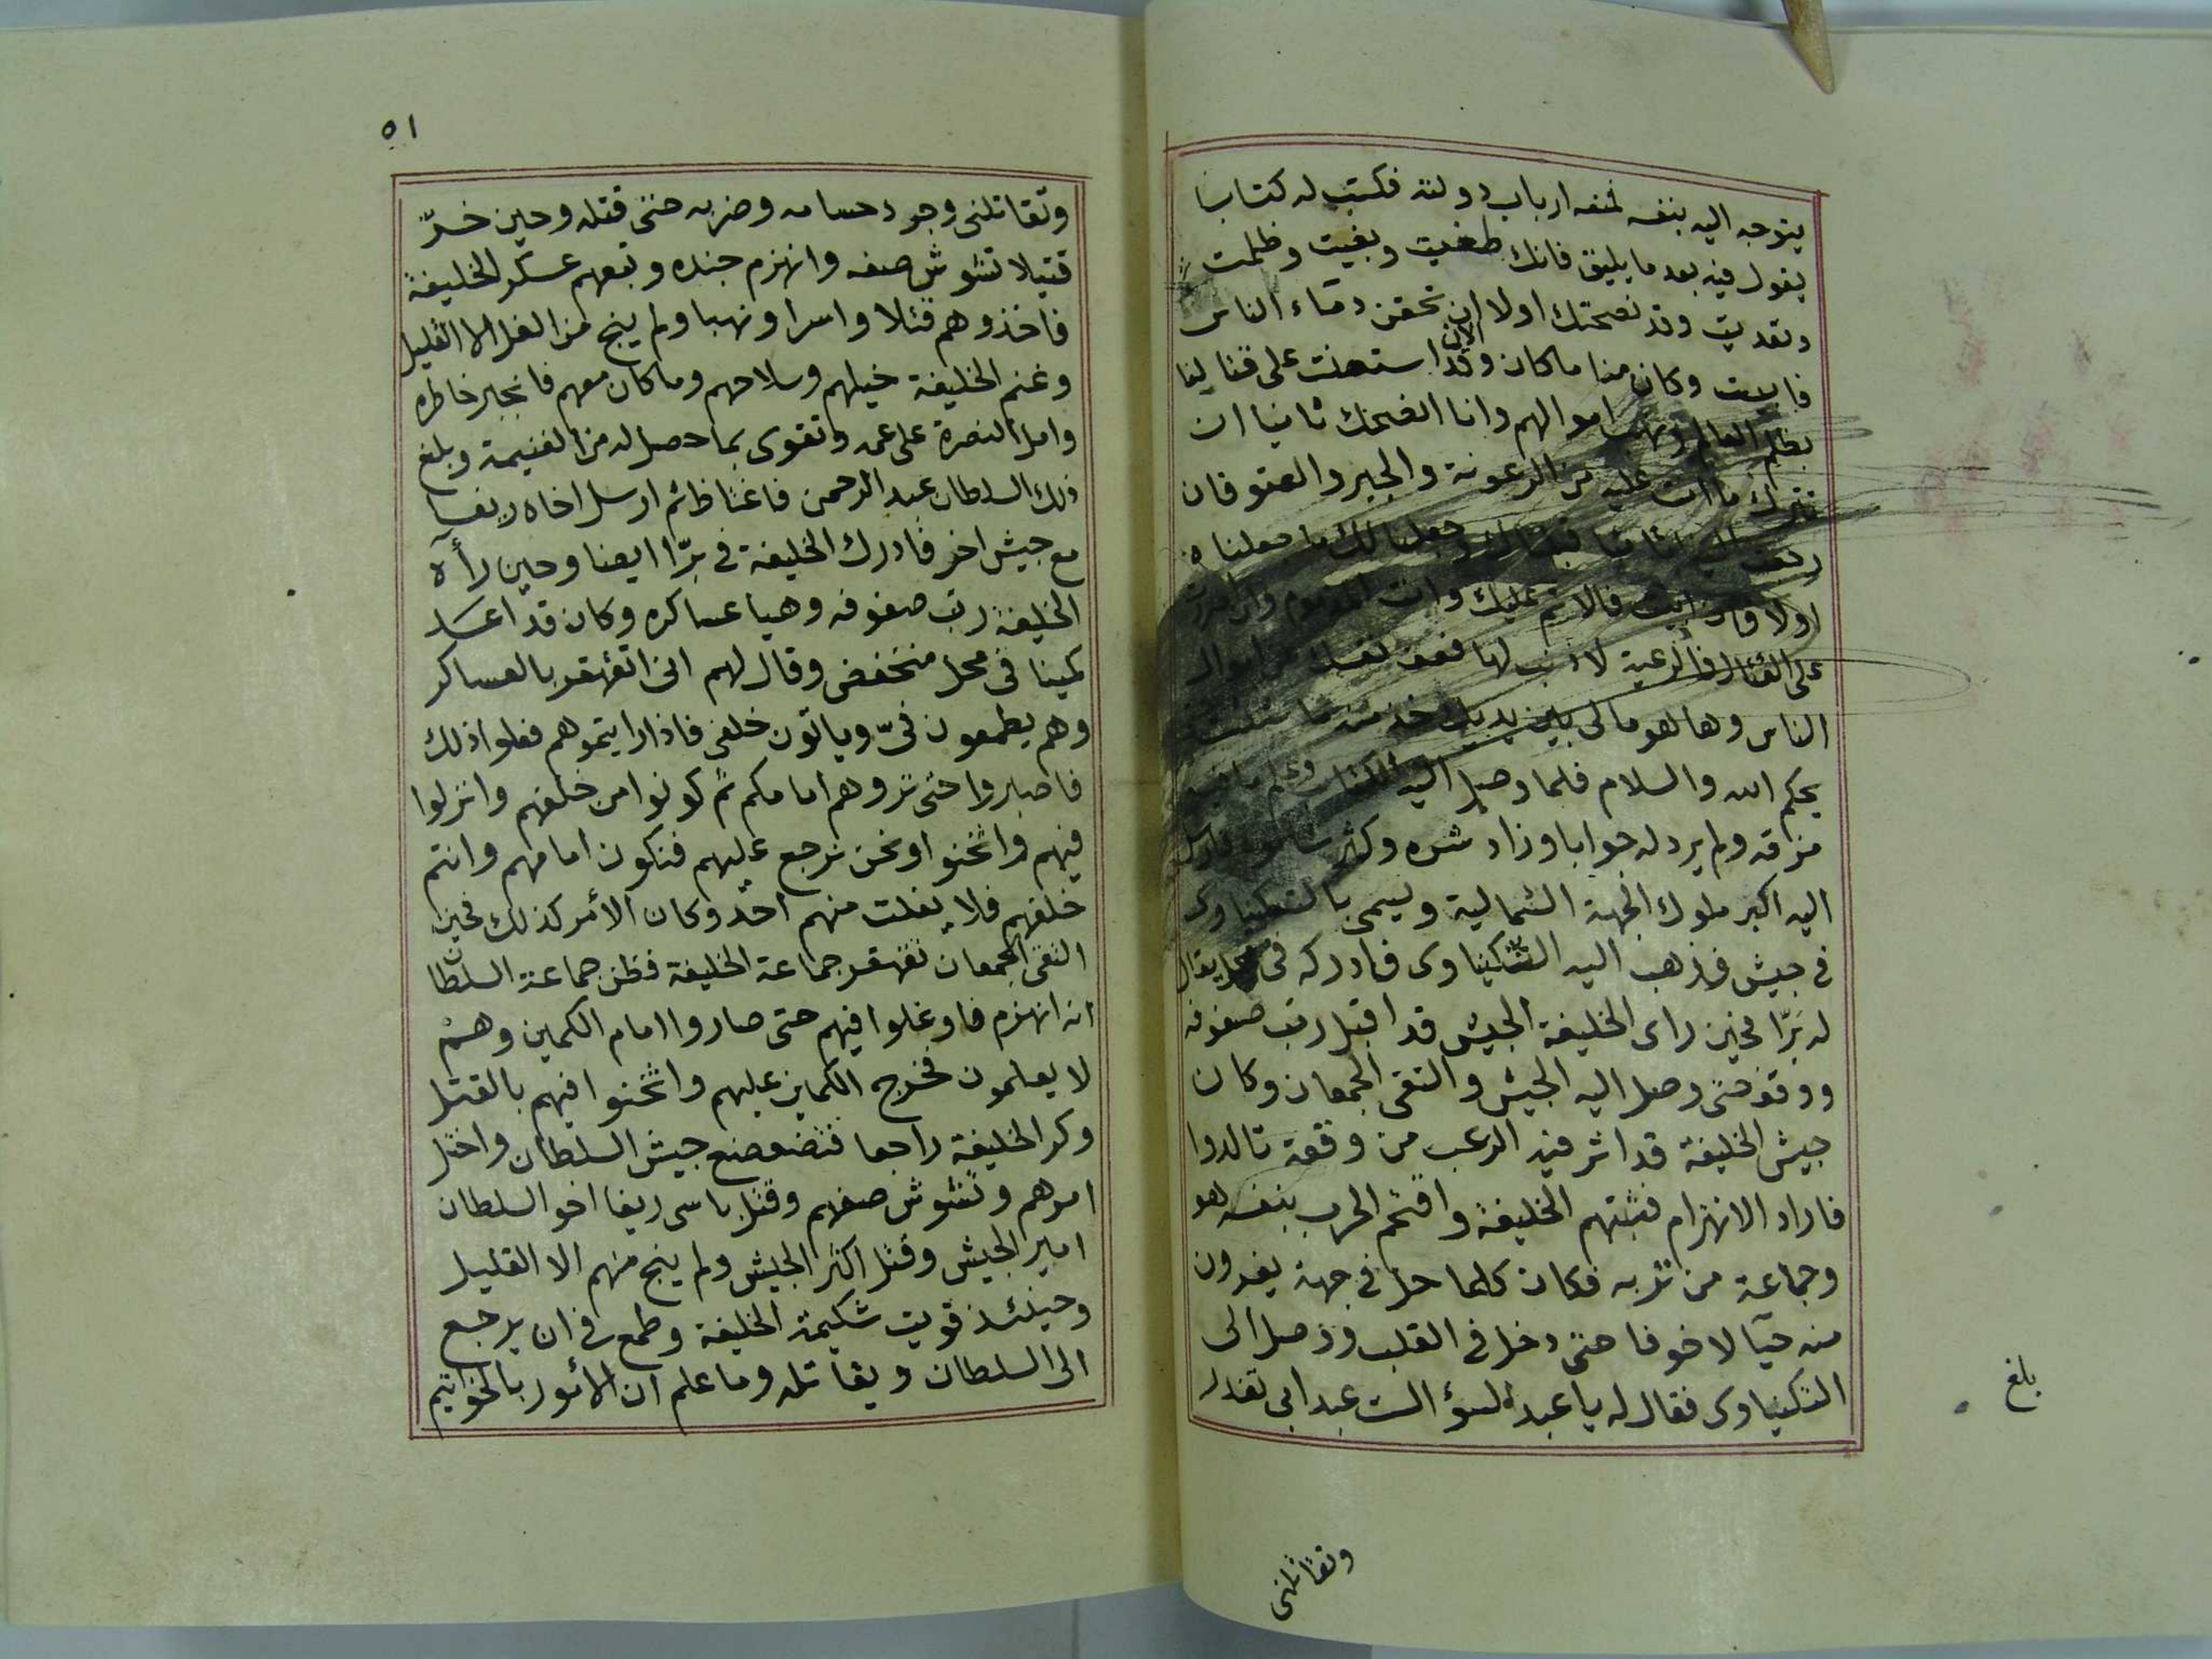 يتوجه اليه بنفسه لمنعه ارباب دولته فكتب له كتابا
يقول فيه بعد ما يليق فانك طغيت وبغيت وظلمت
وتعديت وقد نصحتك اولا ان تحقن دماء الناس
فابيت وكان منا ما كان وقد الان استعنت على قتالنا
بظلم العالم ونهب اموالهم وانا انصحك ثانيا ان
تترك ما انت عليه من الرعونة والجبر والعتو فان
رجعت الينا ثانيا قبلناك وجعلنا لك ما جعلناه
اولا وان ابيت فالاثم عليك وانت
على القتال فالرعية لا ذنب لها فعف نفسك عن اموال
الناس وها هو مالى بين يديك خذ منه ما شئت
يحكم الله والسلام فلما وصل اليه الكتاب وعلم ما فيه
مزقه ولم يرد له جوابا وزاد شره وكثر فارسل
اليه اكبر ملوك الجهة الشمالية ويسمى بالتكنياوى
فى جيش فذهب اليه التكنياوى فادركه فى محل يقال
له بَرّا فحين راى الخليفة الجيش قد اقبل رتب صفوفه
ووقف حتى وصل اليه الجيش والتقى الجمعان وكان
جيش الخليفة قد اثر فيه الرعب من وقعة تالدوا
فاراد الانهزام فثبتهم الخليفة واقتحم الحرب بنفسه هو
وجماعة من تربه فكان كلما حل فى جهة يفرون
منه حيآ لا خوفا حتى دخل فى القلب ووصل الى
التكنياوى فقال له يا عبد السؤ الست عبد ابى تغدر
بلغ
وتقاتلنى
٥١
وتقاتلنى وجرد حسامه وضربه حتى قتله وحين خرّ
قتيلا تشوش صفه وانهزم جنده وتبعهم عسكر الخليفة
فاخذوهم قتلا واسرا ونهبا ولم ينج من الفل الا القليل
وغنم الخليفة خيلهم وسلاحهم وما كان معهم فانجبر خاطره
وامل النصرة على عمه وتقوى بما حصل له من الغنيمة وبلغ
ذلك السلطان عبد الرحمن فاغتاظ ثم ارسل اخاه ريفا
مع جيش اخر فادرك الخليفة فى برّا ايضا وحين رأه
الخليفة رتب صفوفه وهيا عساكره وكان قد اعد
كمينا فى محل منخفض وقال لهم انى اتقهقر بالعساكر
وهم يطمعون فىّ وياتون خلفى فاذا رايتموهم فعلوا ذلك
فاصبروا حتى تروهم امامكم ثم كونوا من خلفهم وانزلوا
فيهم واثخنوا ونحن نرجع عليهم فنكون امامهم وانتم
خلفهم فلا يفلت منهم احد وكان الأمر كذلك فحين
التقى الجمعان تقهقر جماعة الخليفة فظن جماعة السلطان
انه انهزم فاوغلوا فيهم حتى صاروا امام الكمين وهم
لا يعلمون فخرج الكمين عليهم واثخنوا فيهم بالقتل
وكر الخليفة راجعا فتضعضع جيش السلطان واختل
امرهم وتشوش صفهم وقتل باسى ريفا اخو السلطان
امير الجيش وقتل اكثر الجيش ولم ينج منهم الا القليل
وحينئذ قويت شكيمة الخليفة وطمع فى ان يرجع
الى السلطان ويقاتله وما علم ان الأمور بالخواتيم